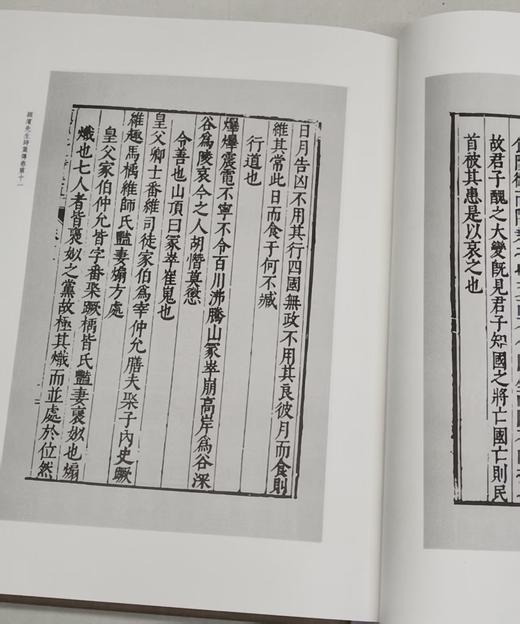 故君子醜之大變既見君子知國之將亡國亡則民
首被其患是以哀之也
日月告凶不用其行四國無政不用其良彼月而食則
維其常此日而食于何不臧
行道也
爗爗震電不寧不令百川沸騰山冢崒崩高岸為谷深
谷為陵哀今之人胡憯莫懲
令善也山頂曰冢崒崔嵬也
皇父卿士番維司徒家伯為宰仲允膳夫棸子內史蹶
維趣馬楀維師氏豔妻煽方處
皇父家伯仲允皆字番棸蹶楀皆氏豔妻褒姒也煽
熾也七人者皆褒姒之黨故極其熾而並處於位然
潁濱先生詩集傳卷第十一